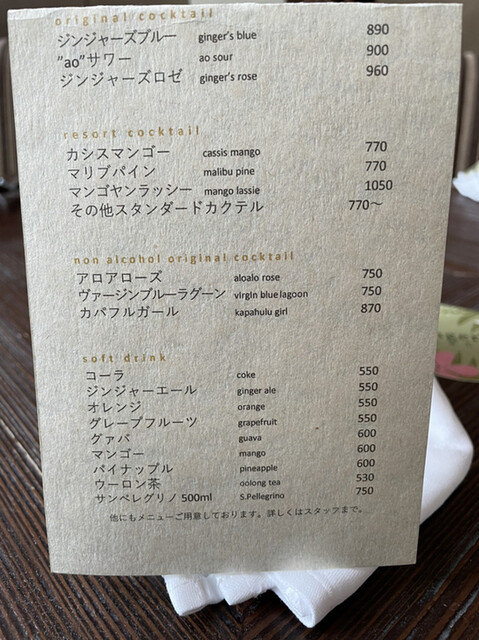 original cocktail
ジンジャーズブルー ginger's blue 890
"ao"サワー ao sour 900
ジンジャーズロゼ ginger's rose 960
resort cocktail
カシスマンゴー cassis mango 770
マリブパイン malibu pine 770
マンゴヤンラッシー mango lassie 1050
その他スタンダードカクテル 770〜
non alcohol original cocktail
アロアローズ aloalo rose 750
ヴァージンブルーラグーン virgin blue lagoon 750
カパフルガール kapahulu girl 870
soft drink
コーラ coke 550
ジンジャーエール ginger ale 550
オレンジ orange 550
グレープフルーツ grapefruit 550
グァバ guava 600
マンゴー mango 600
パイナップル pineapple 600
ウーロン茶 oolong tea 530
サンペレグリノ 500ml S.Pellegrino 750
他にもメニューご用意しております。詳しくはスタッフまで。